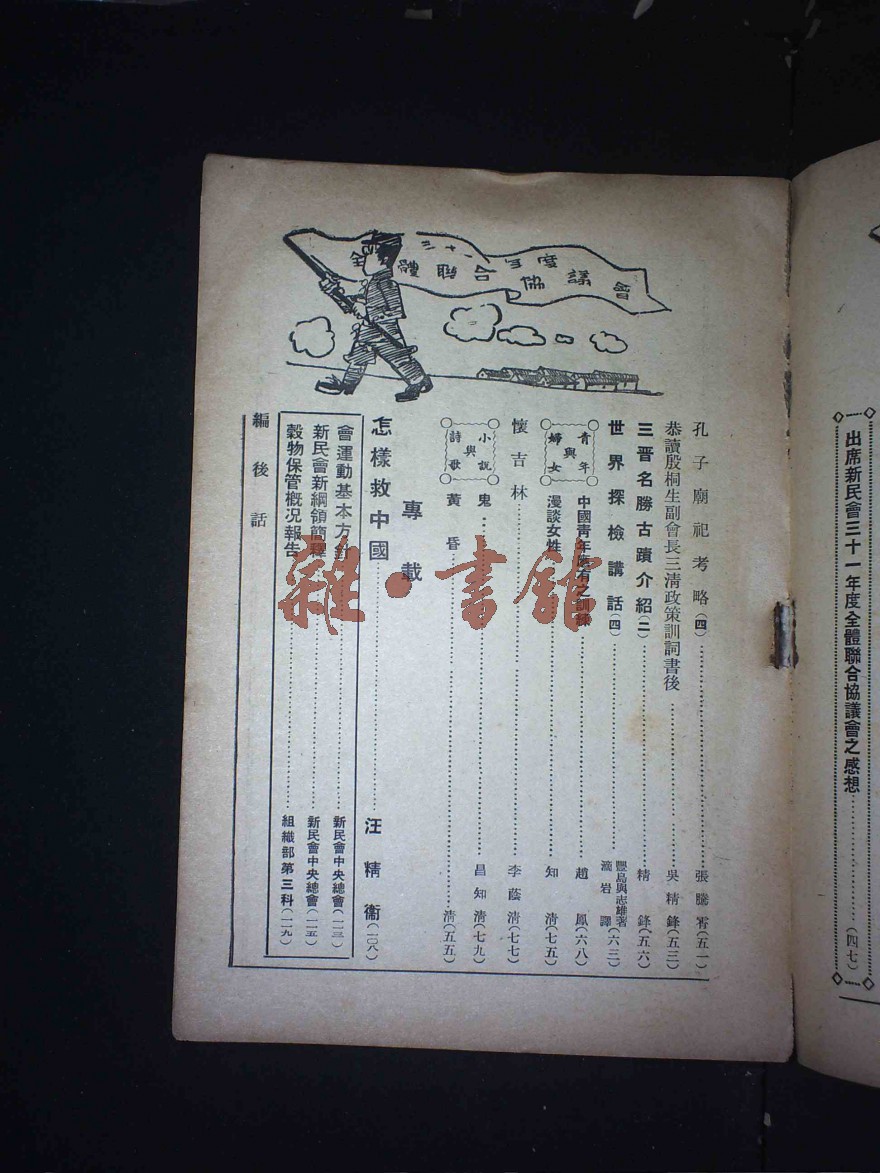 三十一年度
全體聯合協議會
出席新民會三十一年度全體聯合協議會之感想……(四七)
孔子廟祀考略(四)……張騰霄(五一)
恭讀殷桐生副會長三清政策訓詞書後……吳精鋒(五三)
三晉名勝古蹟介紹(二)……精鋒(五六)
世界探檢講話(四)……豐島與志雄著 滴岩譯(六三)
青年與婦女
中國青年應有之訓練……趙鳳(六八)
漫談女性……知清(七五)
懷吉林……李蔭清(七七)
小說與詩歌
鬼……昌知清(七九)
黃昏……清(五五)
專載
怎樣救中國……汪精衞(一〇八)
會運動基本方針……新民會中央總會(一一三)
新民會新綱領簡釋……新民會中央總會(一一五)
穀物保管概况報告……組織部第三科(一一九)
編後話
雜·書館